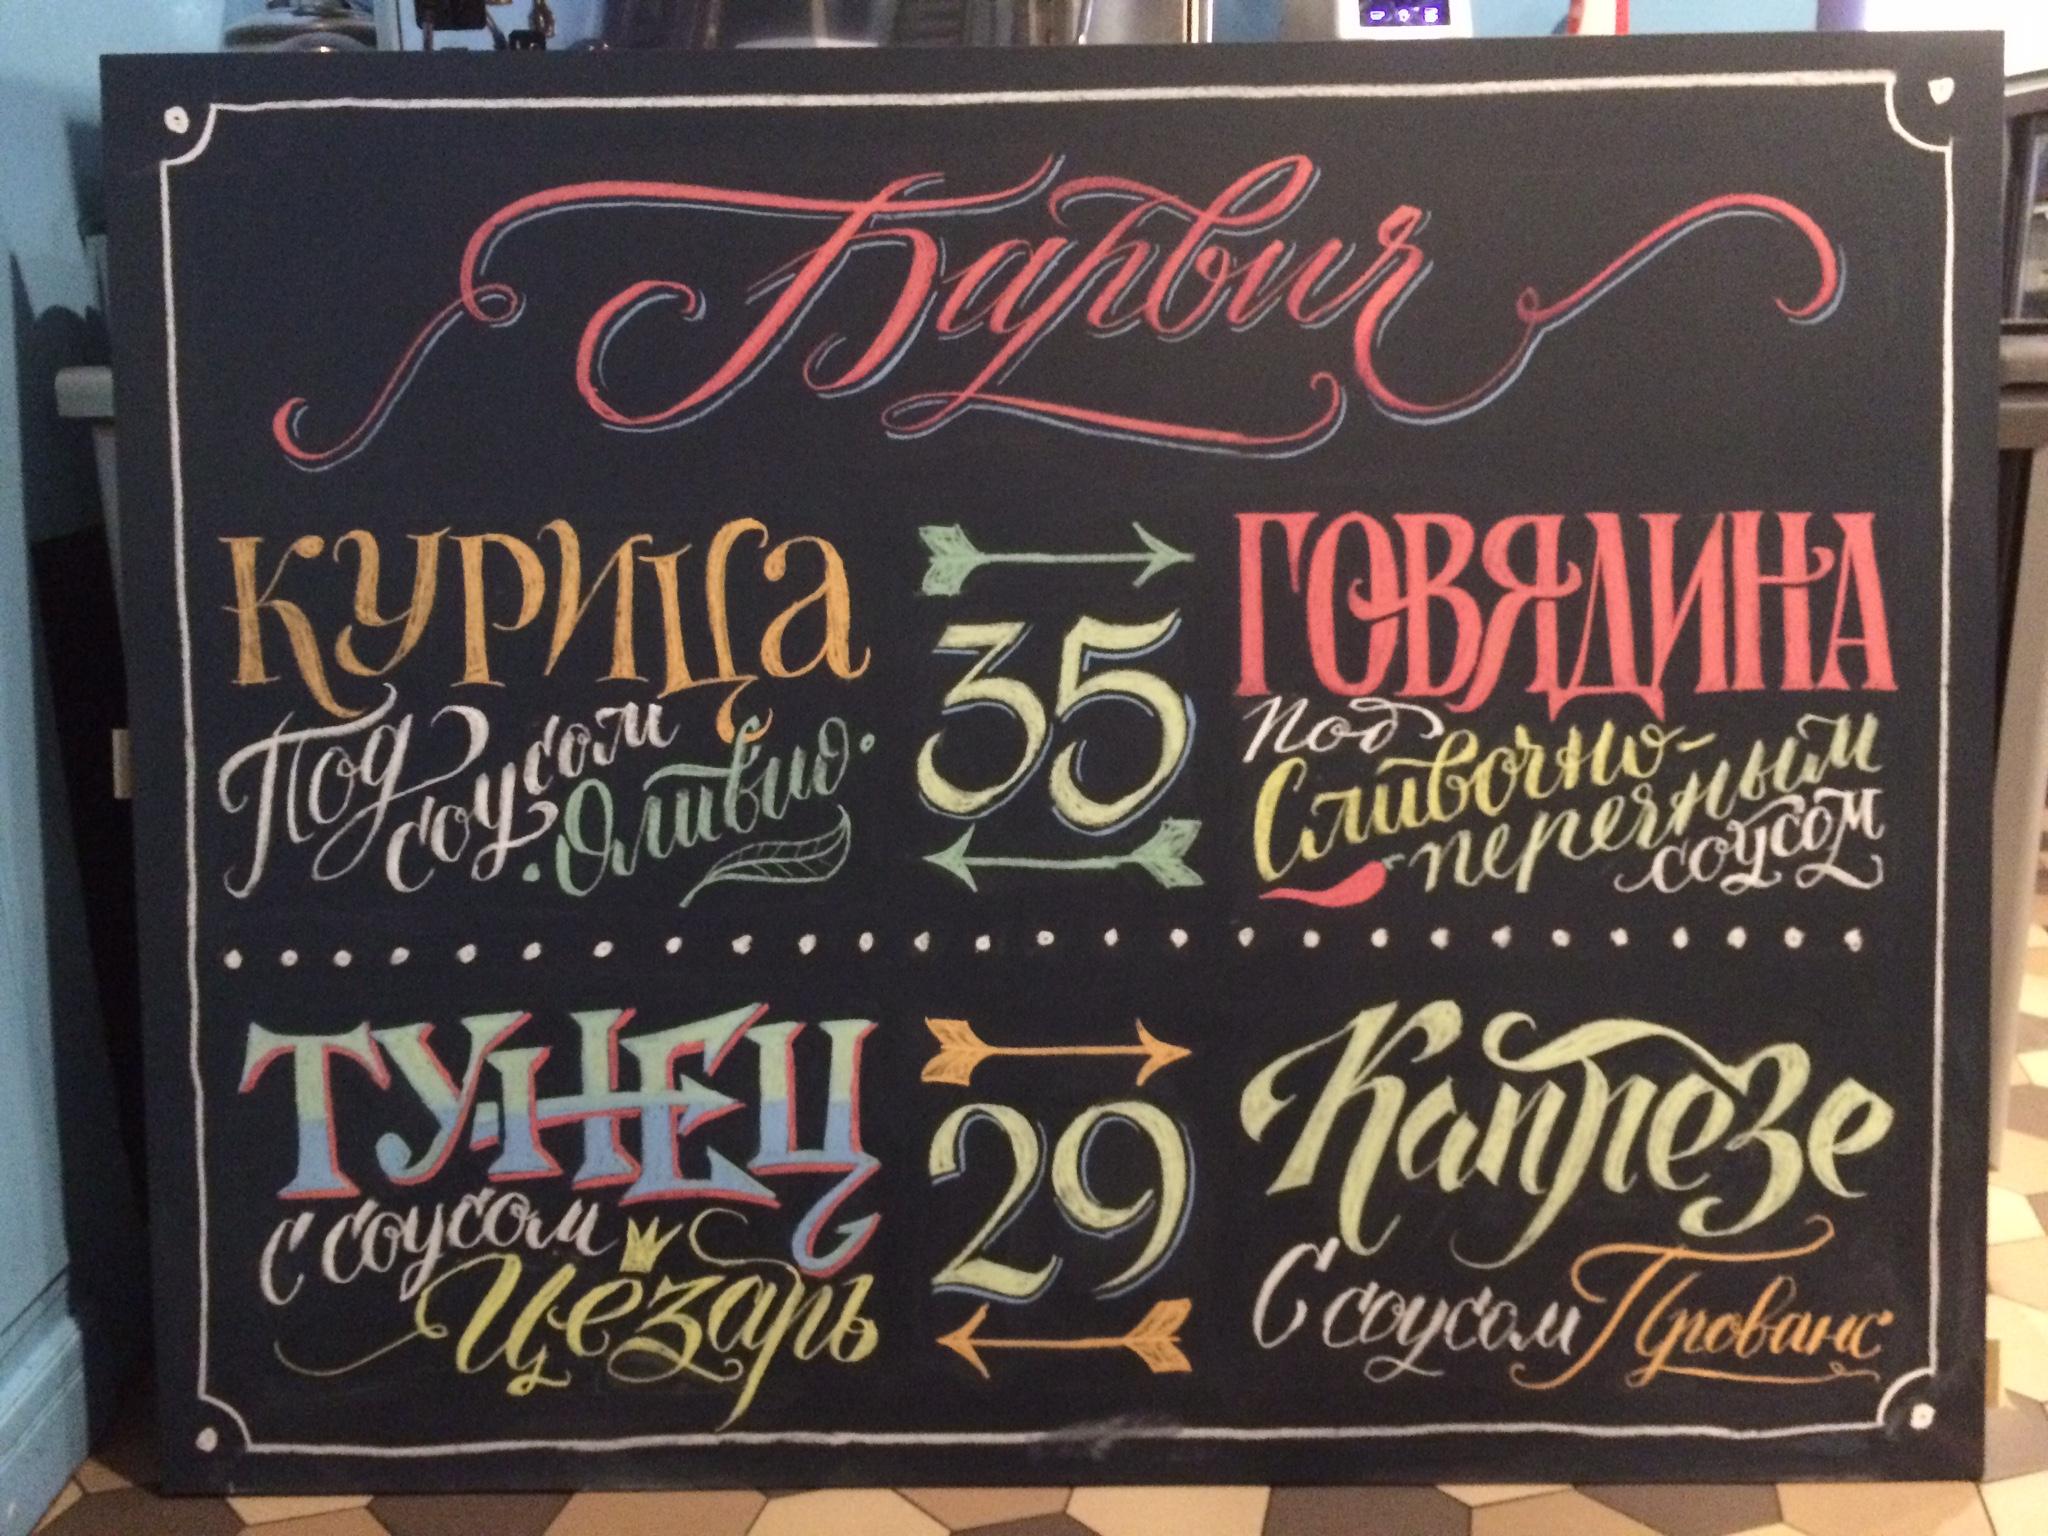 Барвич
КУРИЦа
Под соусом
Оливио
35
ГОВЯДИНА
под
Сливочно-
перечным
соусом
ТУНЕЦ
с соусом
Цезарь
29
Капрезе
С соусом Прованс